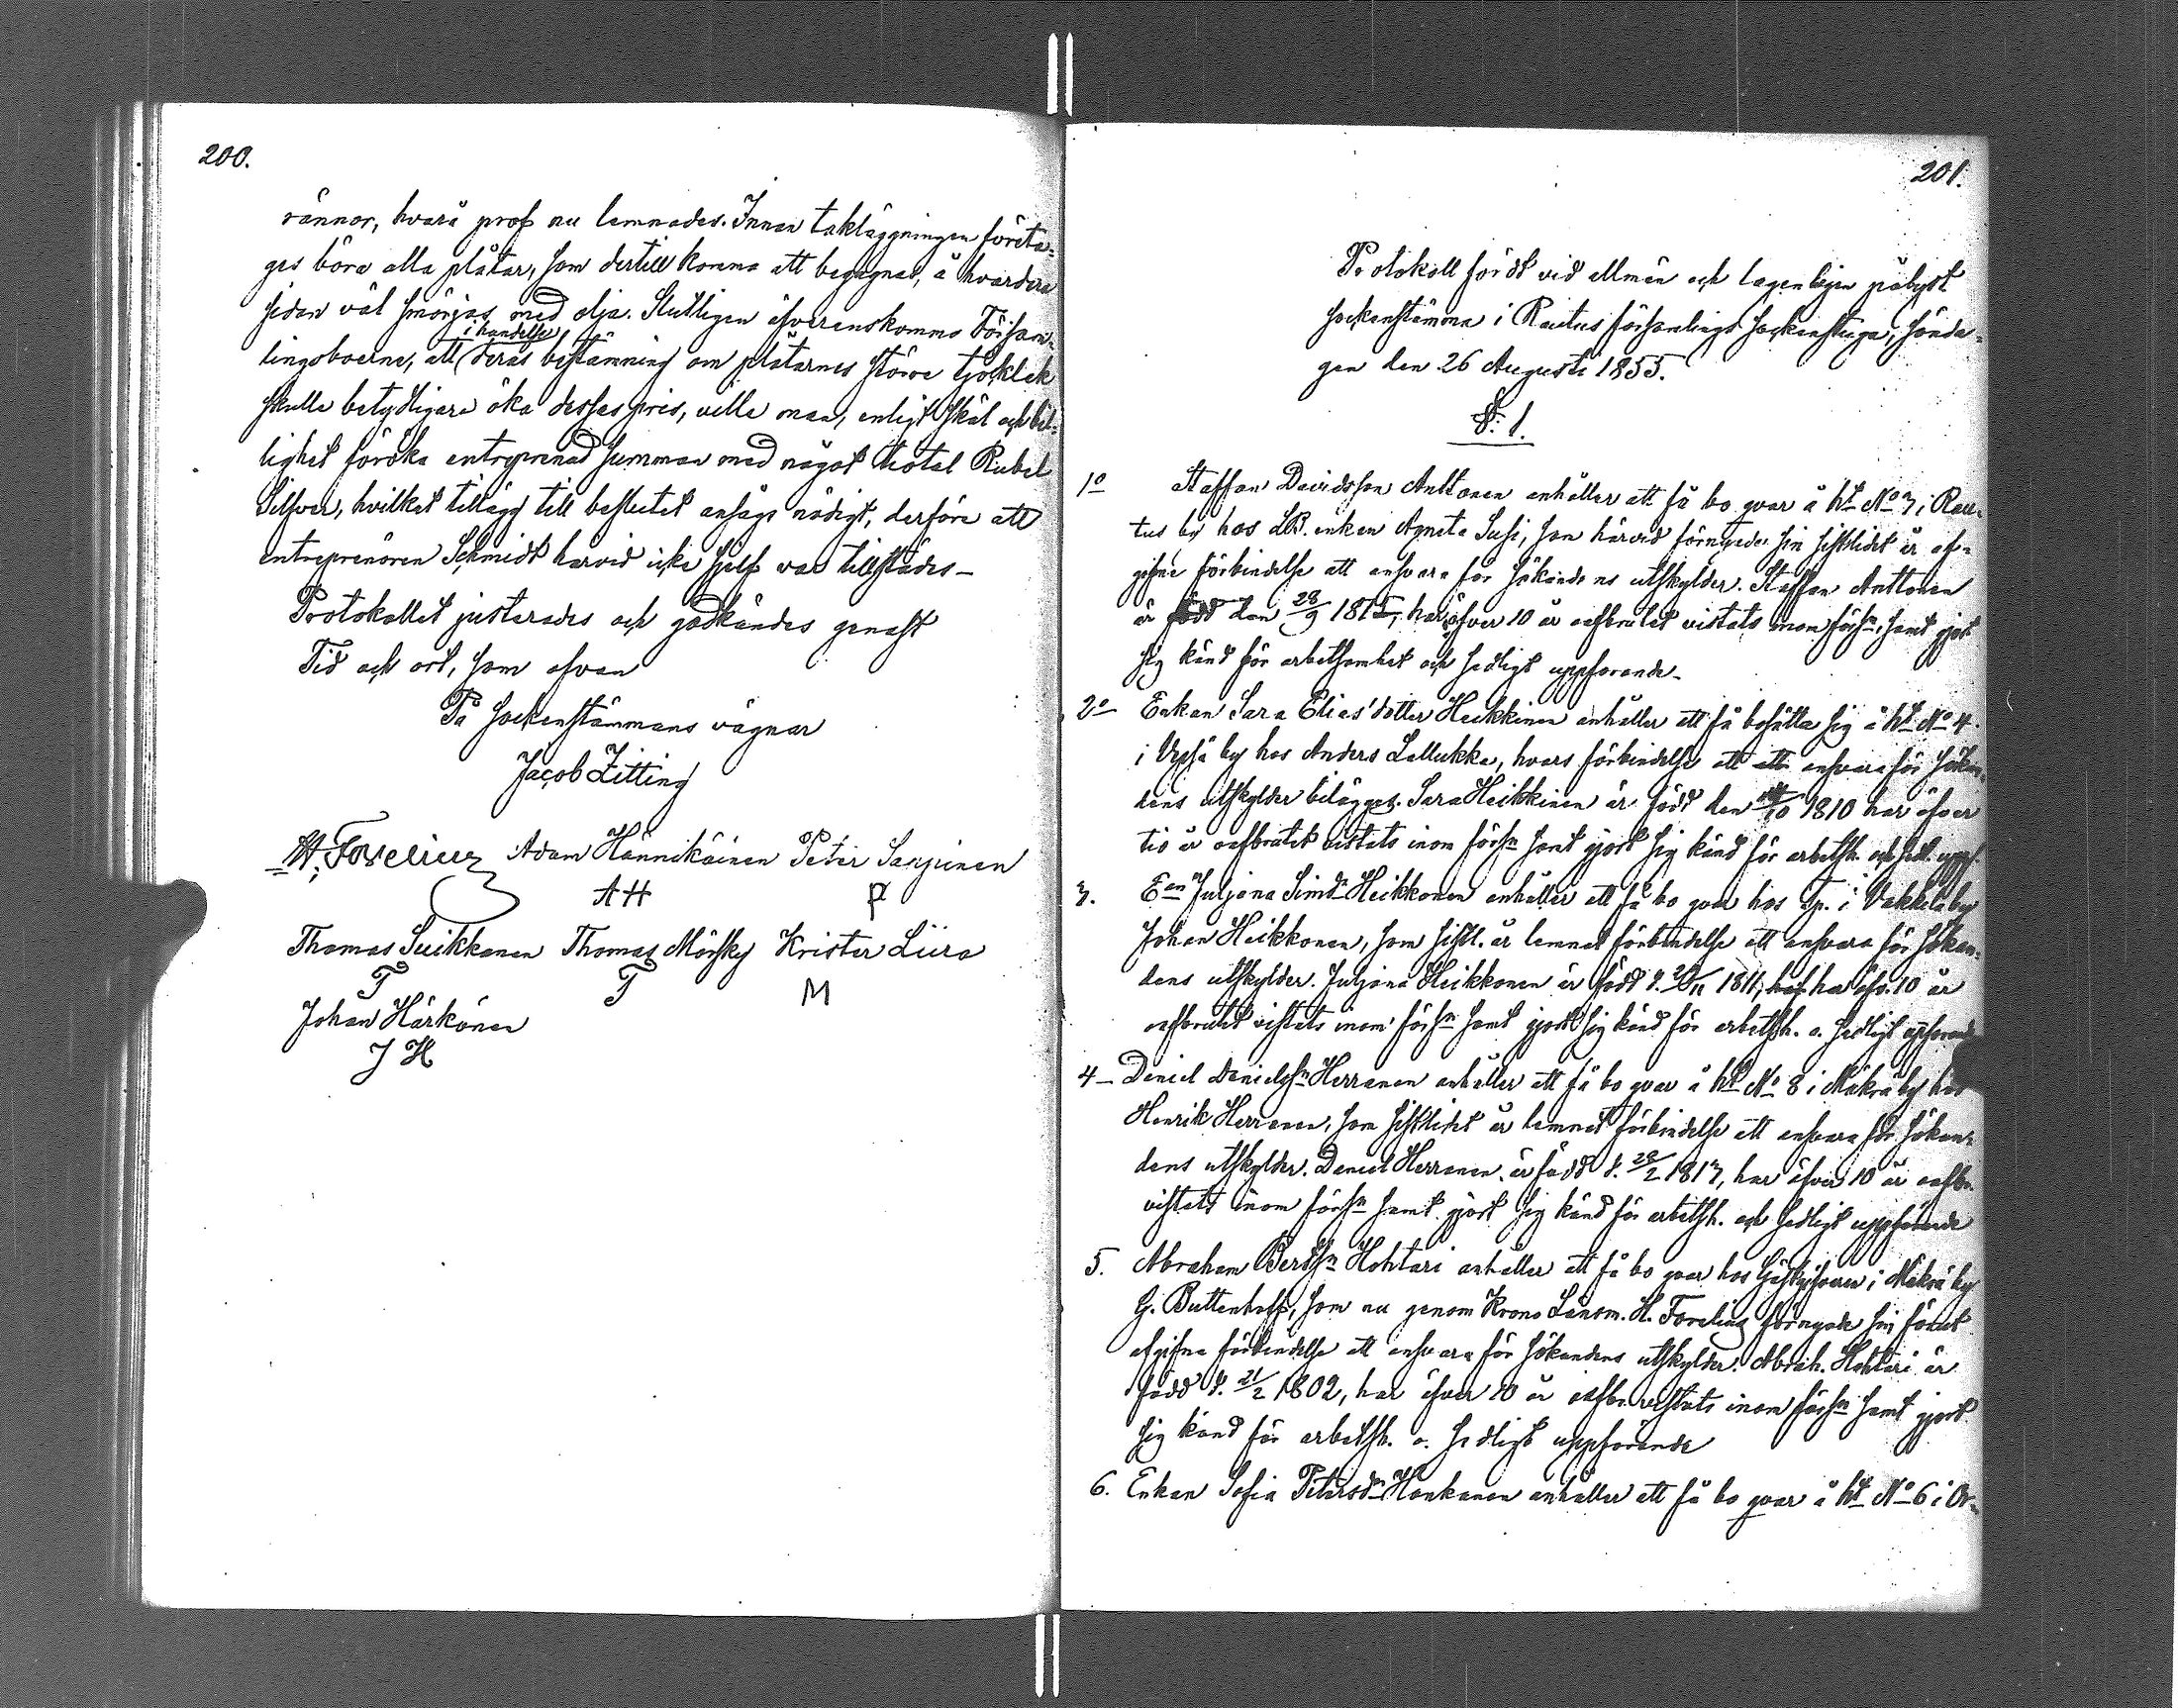 200.
rännor, hvarå prof nu lemnades. Innan takläggningen företa-
ges böra alla plåtar, som dertill komma att begagnas, å hvardera
sidan väl smörjas med olja. Slutligen öfverenskommo Försam-
i händelse
lingsboerne, att deras bestämning om plåtarnes större tjocklek
skulle betydligare öka dessas pris, ville man, enligt skäl och bil-
lighet föröka entreprenad summan med något tiotal Rubel
Silfver, hvilket tillägg till beslutet ansågs nödigt, derföre att
entreprenören Schmidt härvid icke sjelf var tillstädes_
Protokollet justerades och godkändes genast
Tid och ort, som ofvan
På Sockenstämmans vägnar
Jacob Zitting
H. Forelius Adam Hännikäinen Peter Sarjinen
AH P
Thomas Suikkanen Thomas Mörsky Krister Liira
T T M
Johan Härkönen
J H
201.
Protokoll fördt vid allmän och lagenligen pålyst
sockenstämma i Rautus församlings sockenstuga, sönda-
gen den 26 Augusti 1855.
§. 1.
1o Staffan Davidsson Anttonen anhåller att få bo qvar å ht No 3 i Rau-
tus by hos enkan Agneta Susi, som härvid förnyade sin sistlidet år af-
gifne förbindelse att ansvara för sökandens utskylder. Staffan Anttonen
är född den 28/9 1815, har öfver 10 år oafbrutet vistats inom försn, samt gjort
sig känd för arbetsamhet och sedligt uppförande_
2o Enkan Sara Elias'dotter Heikkinen anhåller att få bosätta sig å ht No 4
i by hos Anders Lallukka, hvars förbindelse att att ansvara för sökan-
dens utskylder bilägges. Sara Heikkinen är född den /10 1810 har öfver
tio år oafbrutet vistats inom försn samt gjort sig känd för arbetsh. och sedl. uppf.
3. Ean Juljana Simsdr Heikkonen anhåller att få bo qvar hos i Vakkila by
Johan Heikkonen, som sistl. år lemnat förbindelse att ansvara för sökan-
dens utskylder. Juljana Heikkonen är född d. /11 1811, har öfv. 10 år
oafbrutet vistats inom försn samt gjort sig känd för arbetsh. o. sedligt uppförande
4_ Daniel Danielssn Herranen anhåller att få bo qvar å ht No 8 i Mäkrä by hos
Henrik Herranen, som sistlidet år lemnat förbindelse att ansvara för sökan-
dens utskylder. Daniel Herranen är född d. 28/2 1813, har öfver 10 år oafbr.
vistats inom försn samt gjort sig känd för arbetsh. och sedligt uppförande
5. Abraham Bertilssn Hohtari anhåller att få bo qvar hos Gästgifvaren i Mäkrä by
G. Buttenhoff, som nu genom Krono Länsm. H. Forelius förnyade sin förut
afgifna förbindelse att ansvara för sökandens utskylder. Abrah. Hohtari är
född d. 21/2 1802, har öfver 10 år oafbr. vistats inom försn samt gjort
sig känd för arbetsh. o. sedligt uppförande
6. Enkan Sofia Petersdr Honkanen anhåller att få bo qvar å ht No 6 i Or-